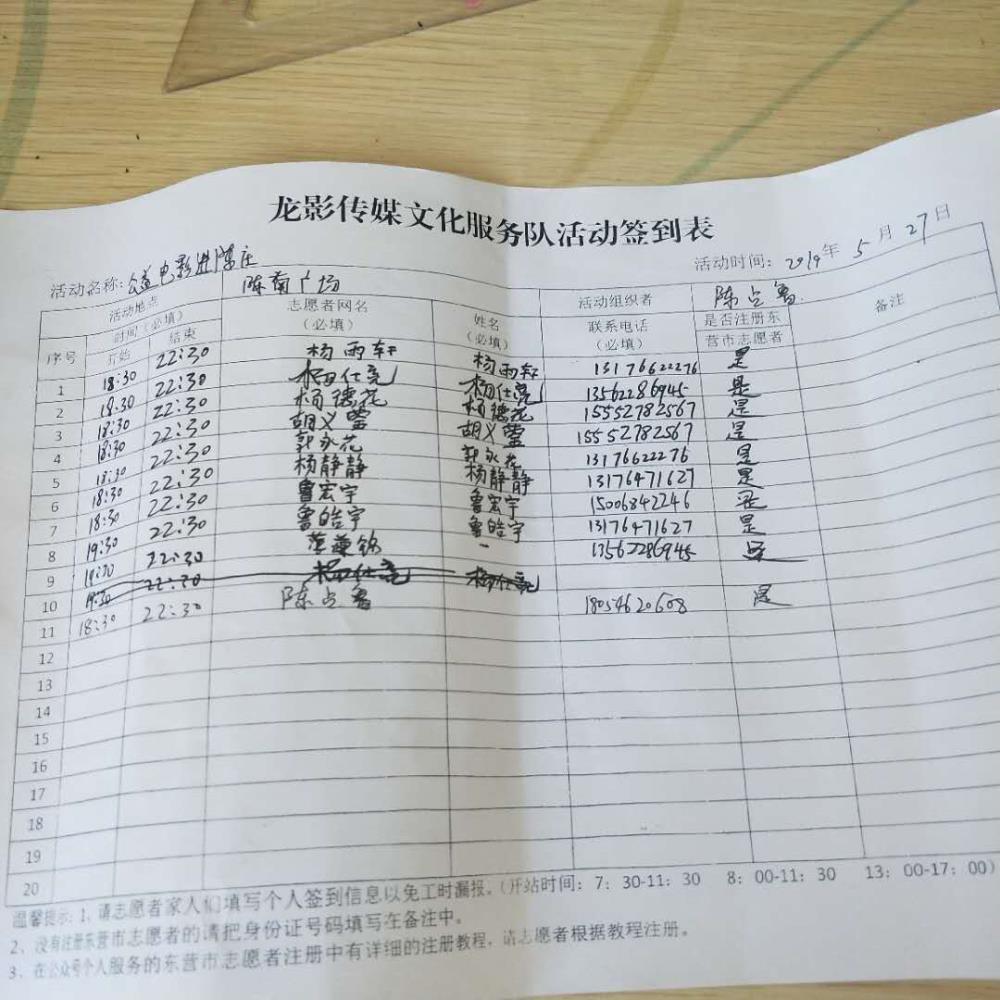 龙影传媒文化服务队活动签到表
活动名称:公益电影进陈庄 活动时间: 2019年 5月 27日
活动地点 陈南广场 活动组织者 陈占鲁 备注
序号 时间(必填) 志愿者网名 姓名 联系电话 是否注册东
开始 结束 (必填) (必填) (必填) 营市志愿者
1 18:30 22:30 杨雨轩 杨雨轩 13176622276 是
2 18:30 22:30 杨仕亮 杨仕亮 13562286945 是
3 18:30 22:30 杨德花 杨德花 15552782567 是
4 18:30 22:30 胡义莹 胡义莹 15552782567 是
5 18:30 22:30 郭永花 郭永花 13176622276 是
6 18:30 22:30 杨静静 杨静静 13176471627 是
7 18:30 22:30 鲁宏宇 鲁宏宇 15006842246 是
8 19:30 22:30 鲁皓宇 鲁皓宇 13176471627 是
9 22:30 13562286945 是
10 22:30 杨仕亮 杨仕亮
11 18:30 22:30 陈占鲁 18054620608 是
12
13
14
15
16
17
18
19
20
温馨提示: 1、请志愿者家人们填写个人签到信息以免工时漏报。(开站时间: 7: 30-11: 30 8: 00-11: 30 13: 00-17: 00)
2、没有注册东营市志愿者的请把身份证号码填写在备注中。
3、在公众号个人服务的东营市志愿者注册中有详细的注册教程, 请志愿者根据教程注册。